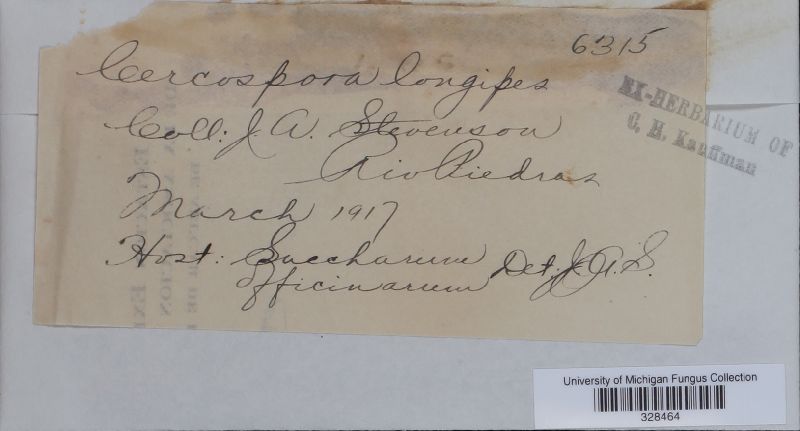 6315
Cercospora longipes
EX-HERBARIUM OF
C. H. Kauffman
Coll: J. A. Stevenson
Rio Piedras
March 1917
Host: Saccharum Det. J. A. S.
officinarum
University of Michigan Fungus Collection
328464